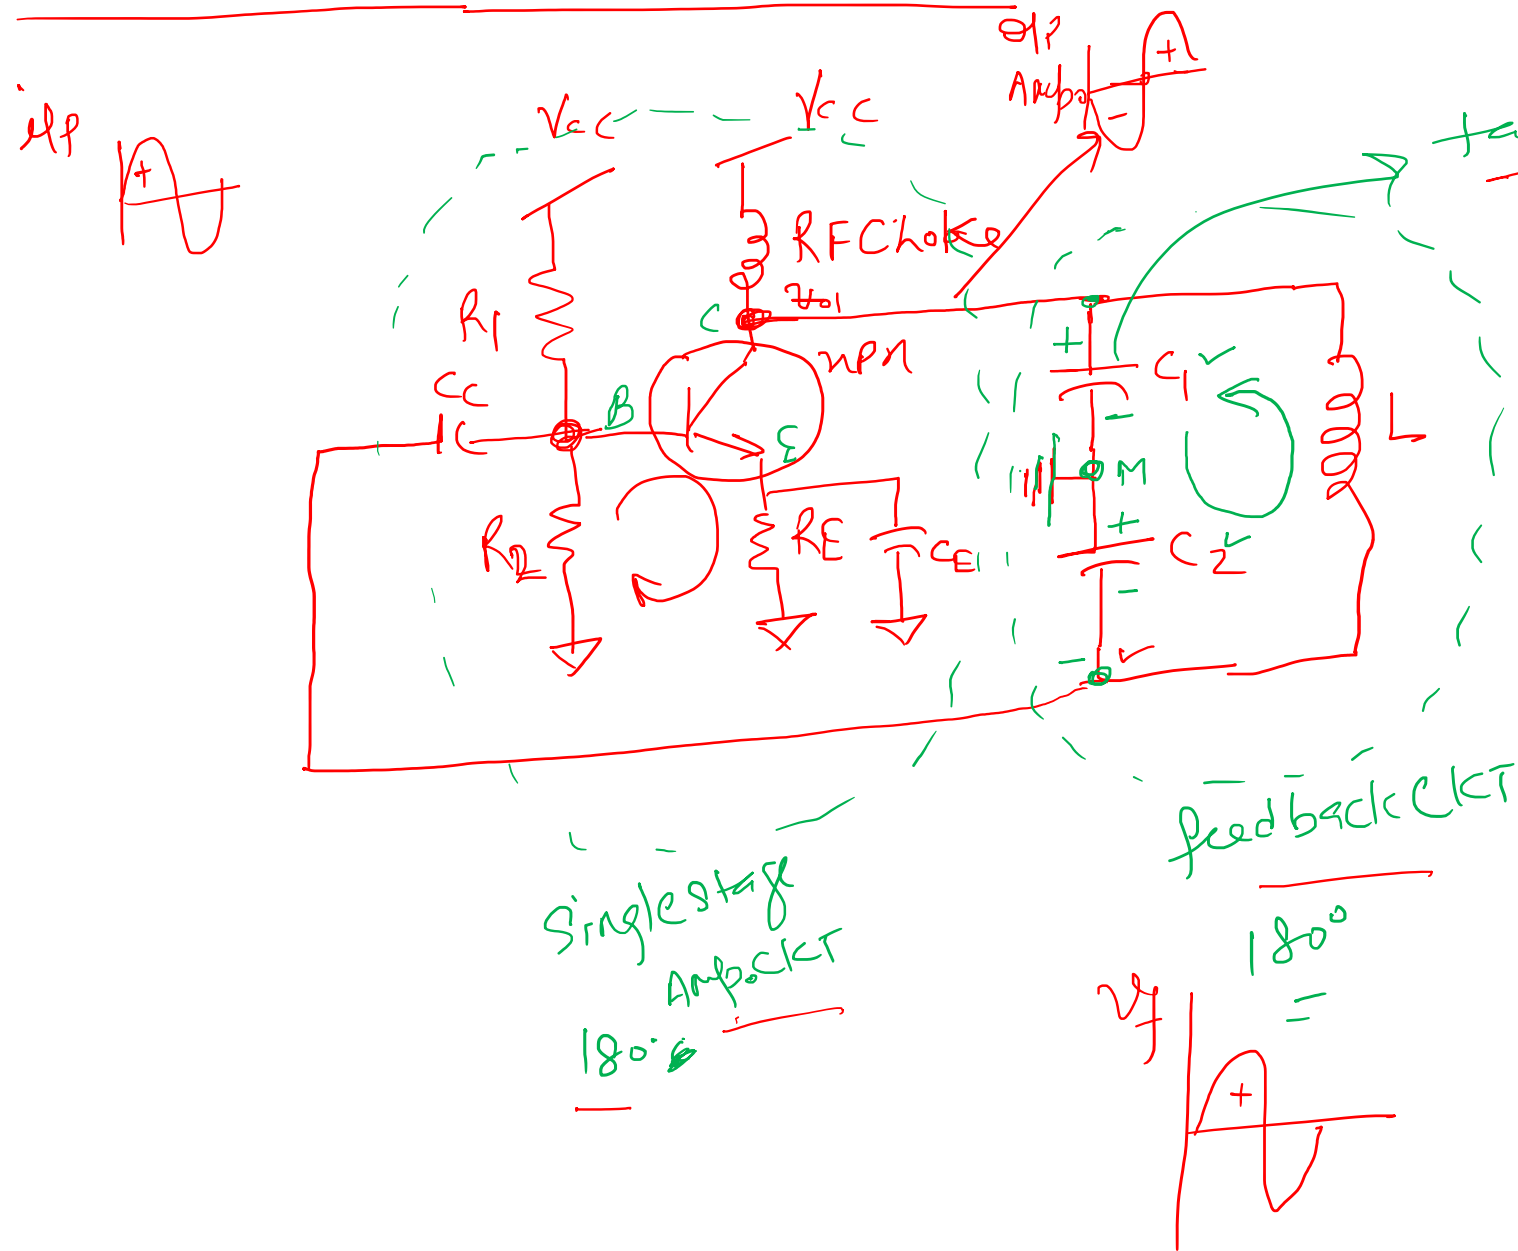 o/p
Amp.
+
-
i/p
+
VCC
VCC
RFChoke
R1
C
Vo1
+
C1
NPN
CC
B
-
L
E
M
R2
RE
CE
+
C2
-
-
feedback CKT
180°
=
Single stage
Amp. CKT
180°
Vf
+